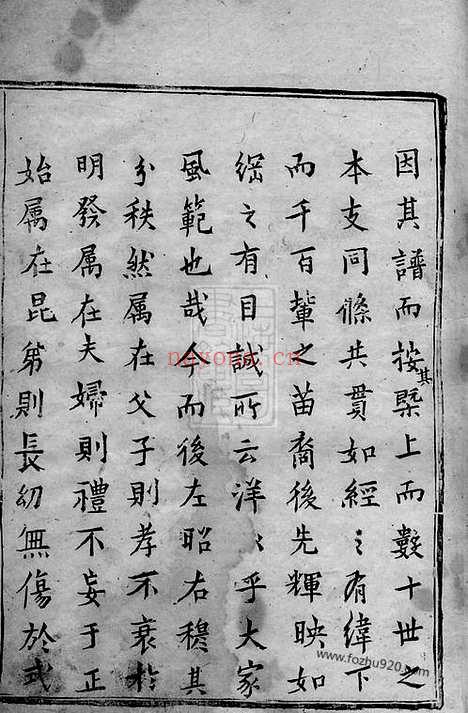 因其譜而按其槩上而數十世之
本支同條共貫如經之有緯下
而千百輩之苗裔後先輝映如
綱之有目誠所云洋〻乎大家
風範也哉今而後左昭右穆其
分秩然属在父子則孝不衰於
明發属在夫婦則禮不妄于正
始属在昆弟則長幼無傷於式
nayona.cn
www.fozhu920.com